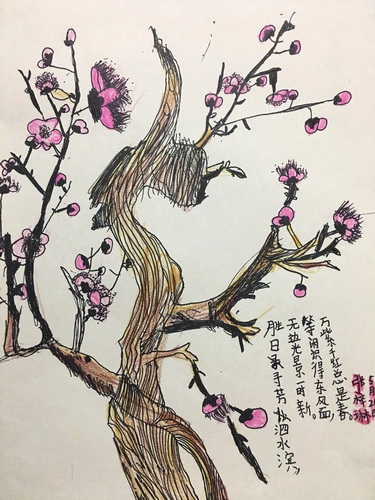 胜日寻芳泗水滨,
无边光景一时新。
等闲识得东风面,
万紫千红总是春。